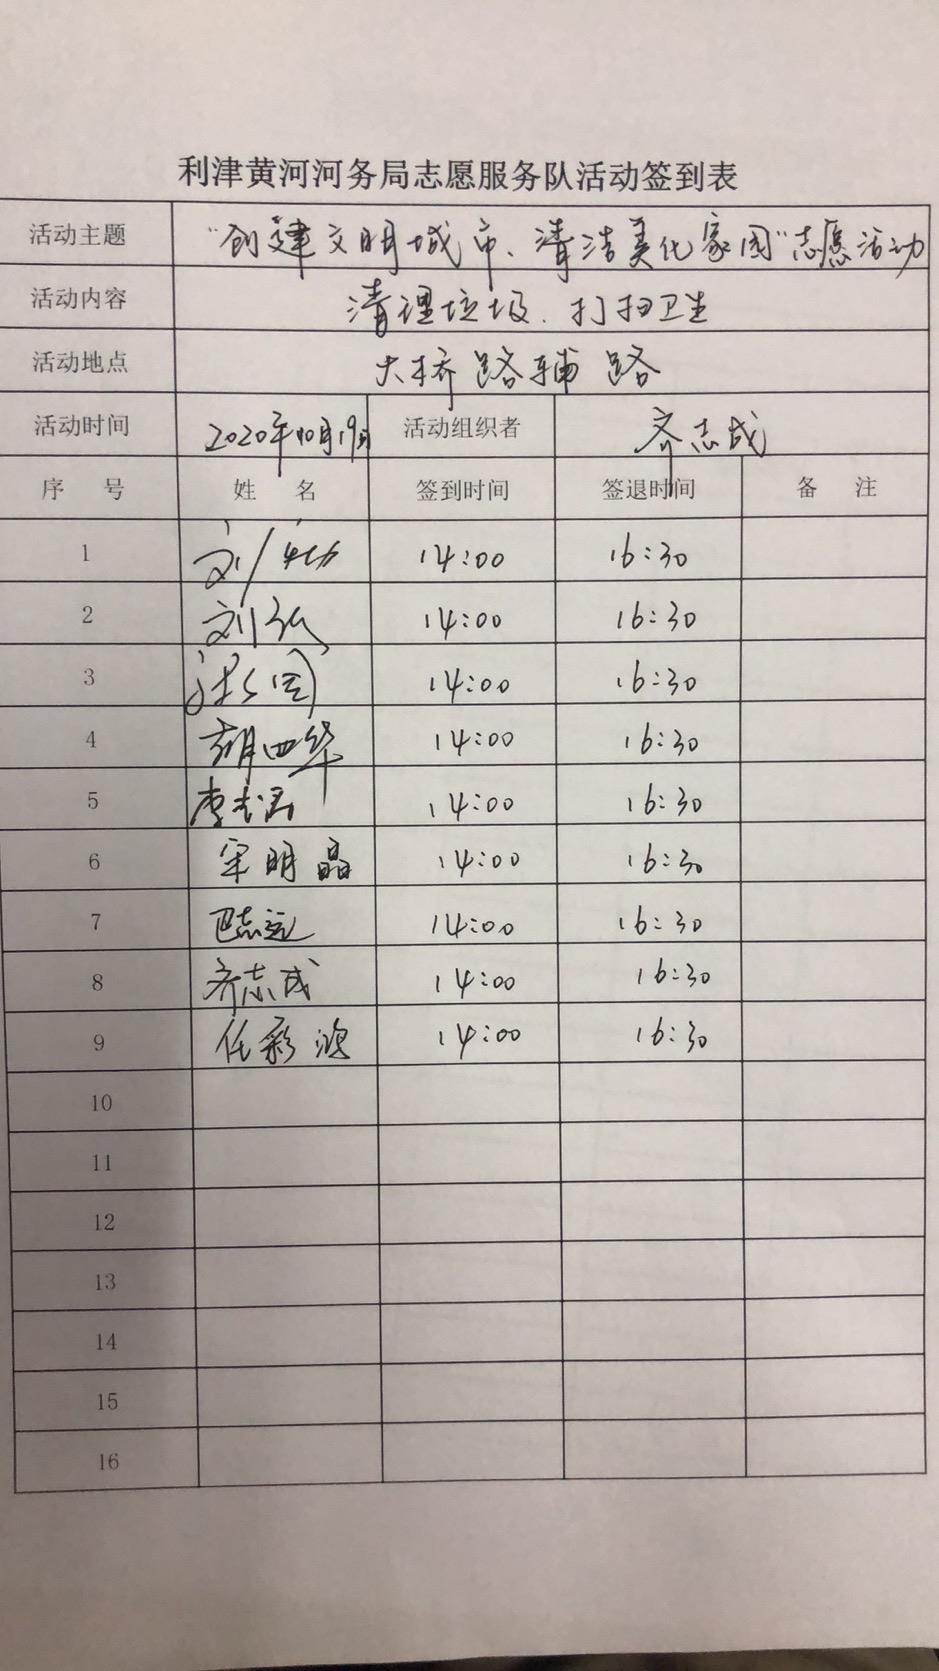 利津黄河河务局志愿服务队活动签到表
活动主题 "创建文明城市、清洁美化家园"志愿活动
活动内容 清理垃圾、打扫卫生
活动地点 大桥路辅路
活动时间 2020年10月19日 活动组织者 齐志成
序 号 姓 名 签到时间 签退时间 备 注
1 刘 14:00 16:30
2 刘弘 14:00 16:30
3 14:00 16:30
4 胡四华 14:00 16:30
5 李 14:00 16:30
6 宋明晶 14:00 16:30
7 巴志远 14:00 16:30
8 齐志成 14:00 16:30
9 任彩鸿 14:00 16:30
10
11
12
13
14
15
16